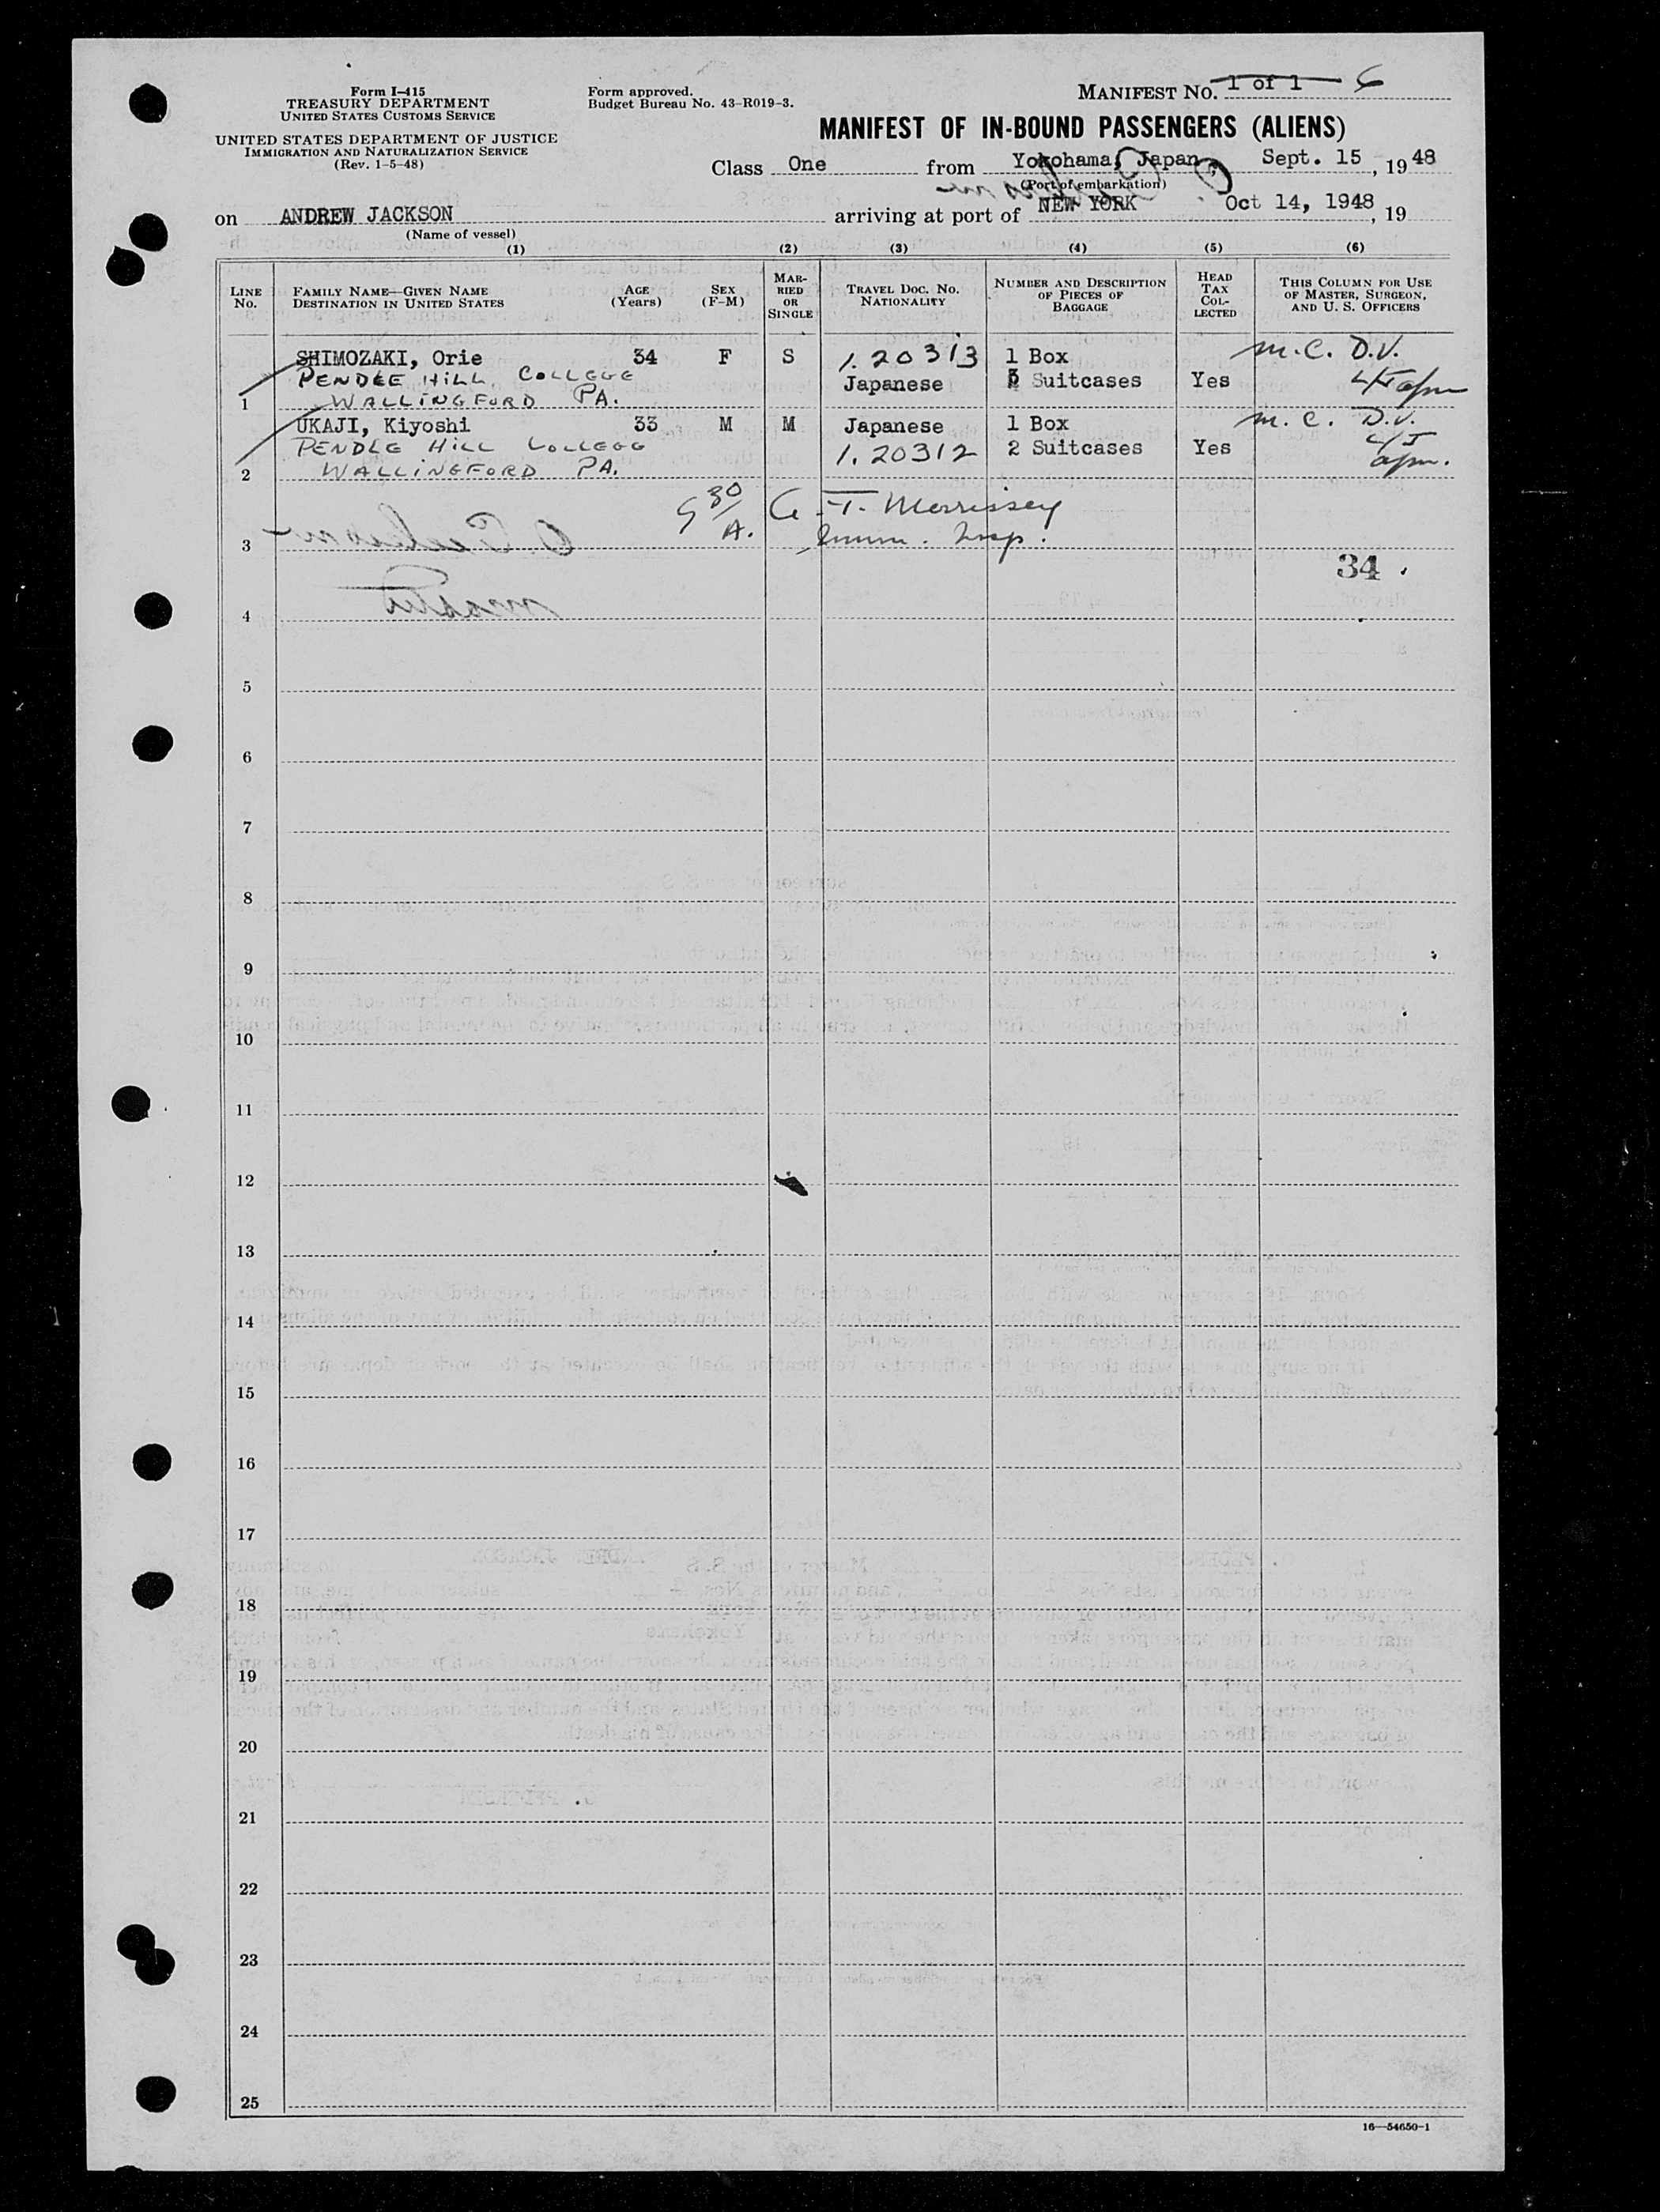 Form I-415
TREASURY DEPARTMENT
UNITED STATES CUSTOMS SERVICE
UNITED STATES DEPARTMENT OF JUSTICE
IMMIGRATION AND NATURALIZATION SERVICE
(Rev. 1-5-48)
Form approved.
Budget Bureau No. 43-R019-3.
MANIFEST NO. 1 of 1 6
MANIFEST OF IN-BOUND PASSENGERS (ALIENS)
Class One from Yokohama, Japan Sept. 15, 1948
(Port of embarkation)
on ANDREW JACKSON arriving at port of NEW YORK Oct 14, 1948, 19
(Name of vessel)
(1) (2) (3) (4) (5) (6)
LINE No.
FAMILY NAME—GIVEN NAME
DESTINATION IN UNITED STATES
AGE (Years)
SEX (F-M)
MARRIED OR SINGLE
TRAVEL DOC. NO. NATIONALITY
NUMBER AND DESCRIPTION OF PIECES OF BAGGAGE
HEAD TAX COLLECTED
THIS COLUMN FOR USE OF MASTER, SURGEON, AND U. S. OFFICERS
SHIMOZAKI, Orie 34 F S 1.20313 1 Box m.c. D.V.
PENDLE HILL COLLEGE Japanese Suitcases Yes
1 WALLINGFORD PA.
UKAJI, Kiyoshi 33 M M Japanese 1 Box m.c. D.V.
PENDLE HILL COLLEGE 1.20312 2 Suitcases Yes
2 WALLINGFORD PA.
9 30/A. G. T. Morrissey
3 Immn. Insp.
34
4
5
6
7
8
9
10
11
12
13
14
15
16
17
18
19
20
21
22
23
24
25
16—54650-1